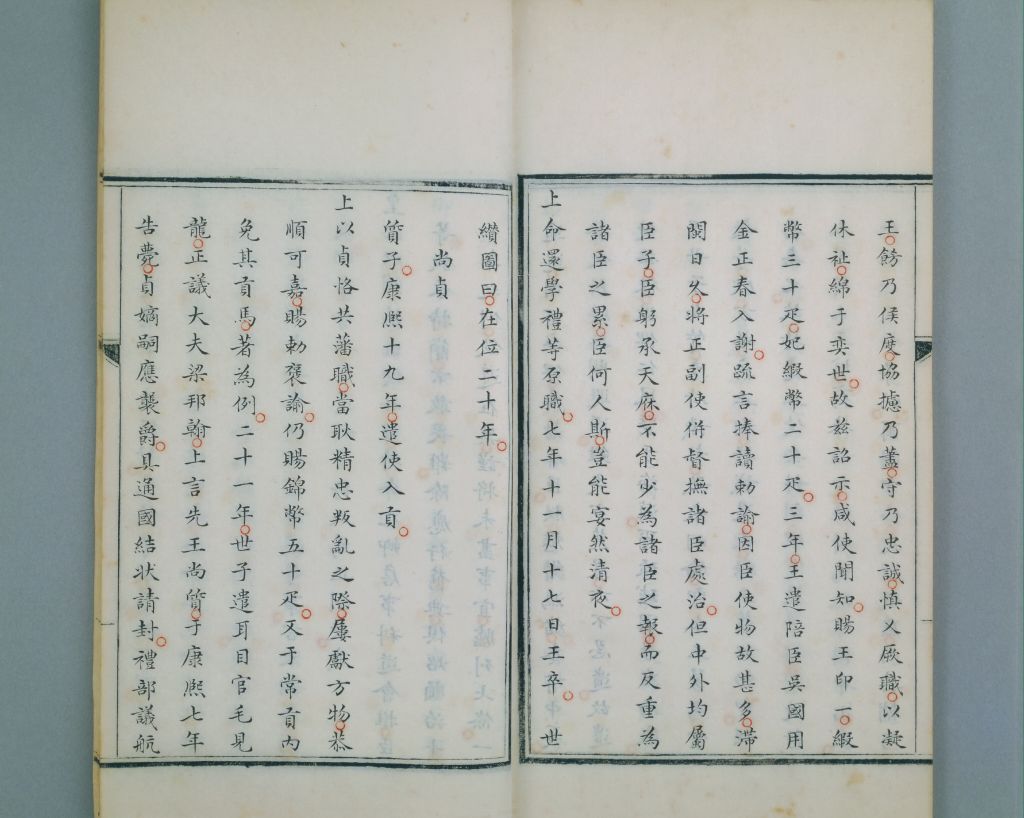 王飭乃侯度協攄乃藎守乃忠誠慎乂厥職以凝
休祉綿于奕世故兹詔示咸使聞知賜王印一緞
幣三十疋妃緞幣二十疋三年王遣陪臣吳國用
金正春入謝疏言捧讀勅諭因臣使物故甚多滯
閩日久將正副使併督撫諸臣處治但中外均屬
臣子臣躬承天庥不能少為諸臣之報而反重為
諸臣之累臣何人斯豈能宴然清夜
上命還學禮等原職七年十一月十七日王卒世
纘圖曰在位二十年
尚貞
質子康熈十九年遣使入貢
上以貞恪共藩職當耿精忠叛亂之際屢獻方物恭
順可嘉賜勅褒諭仍賜錦幣五十疋又于常貢内
免其貢馬著為例二十一年世子遣耳目官毛見
龍正議大夫梁邦翰上言先王尚質于康熈七年
告薨貞嫡嗣應襲爵具通國結状請封禮部議航